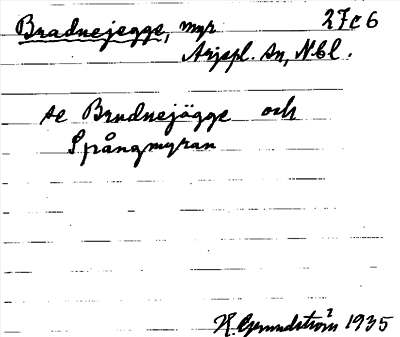 Bradnejegge, myr 27c6
Arjepl. sn, Nbl.
se Brudnejägge och
Språngmyran
K. Gerundström 1935